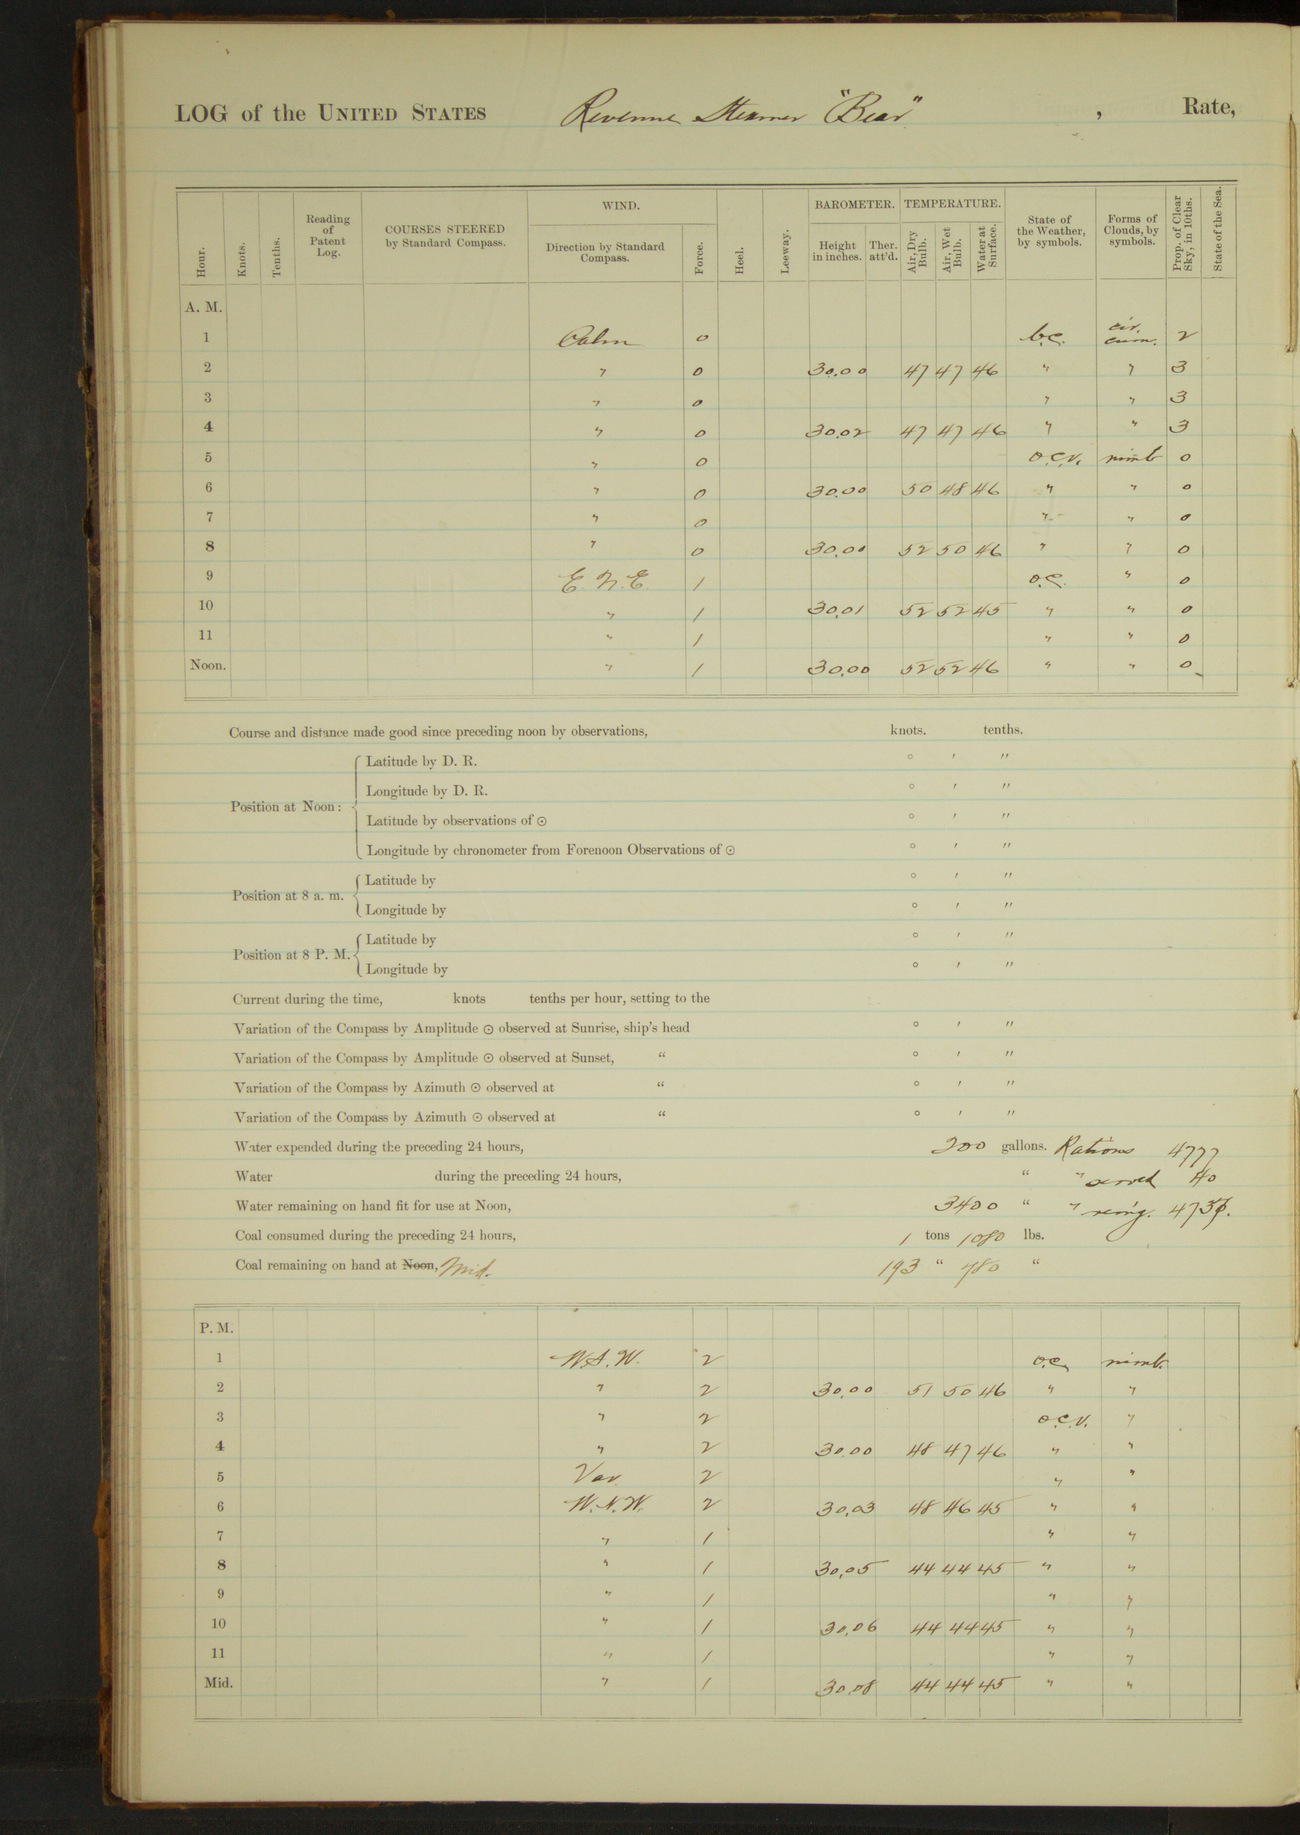 LOG of the UNITED STATES Revenue Steamer "Bear" , Rate,
Hour. Knots. Tenths. Reading of Patent Log. COURSES STEERED by Standard Compass. WIND. Direction by Standard Compass. Force. Heel. Leeway. BAROMETER. Height in inches. Ther. att'd. TEMPERATURE. Air, Dry Bulb. Air, Wet Bulb. Water at Surface. State of the Weather, by symbols. Forms of Clouds, by symbols. Prop. of Clear Sky, in 10ths. State of the Sea.
A. M.
1 Calm 0 b.c. cir. cum. 2
2 " 0 30.00 47 47 46 " " 3
3 " 0 " " 3
4 " 0 30.02 47 47 46 " " 3
5 " 0 o.c.v. nimb 0
6 " 0 30.00 50 48 46 " " 0
7 " 0 " " 0
8 " 0 30.00 52 50 46 " " 0
9 E.N.E. 1 o.c. " 0
10 " 1 30.01 52 52 45 " " 0
11 " 1 " " 0
Noon. " 1 30.00 52 52 46 " " 0
Course and distance made good since preceding noon by observations, knots. tenths.
Position at Noon: Latitude by D. R. ° ′ ″
Longitude by D. R. ° ′ ″
Latitude by observations of ⊙ ° ′ ″
Longitude by chronometer from Forenoon Observations of ⊙ ° ′ ″
Position at 8 a. m. Latitude by ° ′ ″
Longitude by ° ′ ″
Position at 8 P. M. Latitude by ° ′ ″
Longitude by ° ′ ″
Current during the time, knots tenths per hour, setting to the
Variation of the Compass by Amplitude ⊙ observed at Sunrise, ship's head ° ′ ″
Variation of the Compass by Amplitude ⊙ observed at Sunset, “ ° ′ ″
Variation of the Compass by Azimuth ⊙ observed at “ ° ′ ″
Variation of the Compass by Azimuth ⊙ observed at “ ° ′ ″
Water expended during the preceding 24 hours, 200 gallons. Rations 4777
Water during the preceding 24 hours, “ " served 40
Water remaining on hand fit for use at Noon, 3400 “ " rem'g. 4737.
Coal consumed during the preceding 24 hours, 1 tons 1080 lbs.
Coal remaining on hand at Noon, Mid. 193 “ 780 “
P. M.
1 W.S.W. 2 o.c. nimb.
2 " 2 30.00 51 50 46 " "
3 " 2 o.c.v. "
4 " 2 30.00 48 47 46 " "
5 Var. 2 " "
6 W.N.W. 2 30.03 48 46 45 " "
7 " 1 " "
8 " 1 30.05 44 44 45 " "
9 " 1 " "
10 " 1 30.06 44 44 45 " "
11 " 1 " "
Mid. " 1 30.08 44 44 45 " "